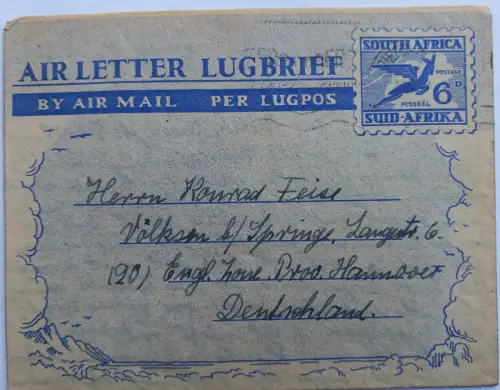 SOUTH AFRICA
POSTAGE
POSSEËL
6D
SUID-AFRIKA
AIR LETTER LUGBRIEF
BY AIR MAIL PER LUGPOS
Herrn Konrad Feise
Völksen b/ Springe, Langestr. 6
(20) Engl. Zone. Prov. Hannover
Deutschland.